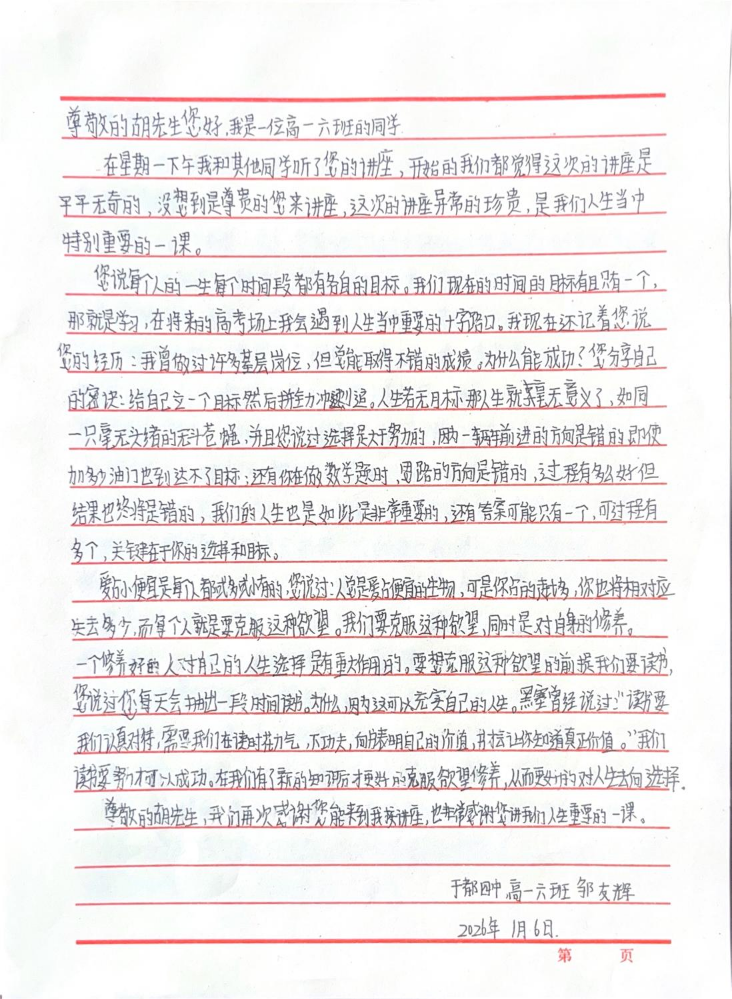 尊敬的胡先生您好，我是一位高一六班的同学
在星期一下午我和其他同学听了您的讲座，开始的我们都觉得这次的讲座是
平平无奇的，没想到是尊贵的您来讲座，这次的讲座异常的珍贵，是我们人生当中
特别重要的一课。
您说每个人的一生每个时间段都有各自的目标。我们现在的时间的目标有且只有一个，
那就是学习，在将来的高考场上我会遇到人生当中重要的十字路口。我现在还记着您说
您的经历：我曾做过许多基层岗位，但总能取得不错的成绩。为什么能成功？您分享自己
的密诀：给自己立一个目标然后拼全力冲刺追。人生若无目标那人生就毫无意义了，如同
一只毫无头绪的无头苍蝇，并且您说过选择是大于努力的，因为一辆车前进的方向是错的即使
加多少油门也到达不了目标；还有你在做数学题时，思路的方向是错的，过程有多么好但
结果也终将是错的，我们的人生也是如此是非常重要的，还有答案可能只有一个，可过程有
多个，关键在于你的选择和目标。
爱占小便宜是每个人都或多或小有的，您说过：人总是爱占便宜的生物，可是你占的越多，你也将相对应
失去多少，而每个人就是要克服这种欲望。我们要克服这种欲望，同时是对自身的修养。
一个修养好的人对自己的人生选择是有重大作用的。要想克服这种欲望的前提我们要读书，
您说过您每天会抽出一段时间读书。为什么，因为这可以充实自己的人生。黑塞曾经说过：“读书要
我们认真对待，需要我们在读时花力气，下功夫，向书表明自己的价值，书才会让你知道真正价值。”我们
读书要努力才可以成功。在我们有了新的知识后才更好的克服欲望修养，从而更好的对人生去向选择．
尊敬的胡先生，我们再次感谢您能来到我校讲座，也非常感谢您讲我们人生重要的一课。
于都四中 高一六班 邹友辉
2026年 1月6日.
第 页